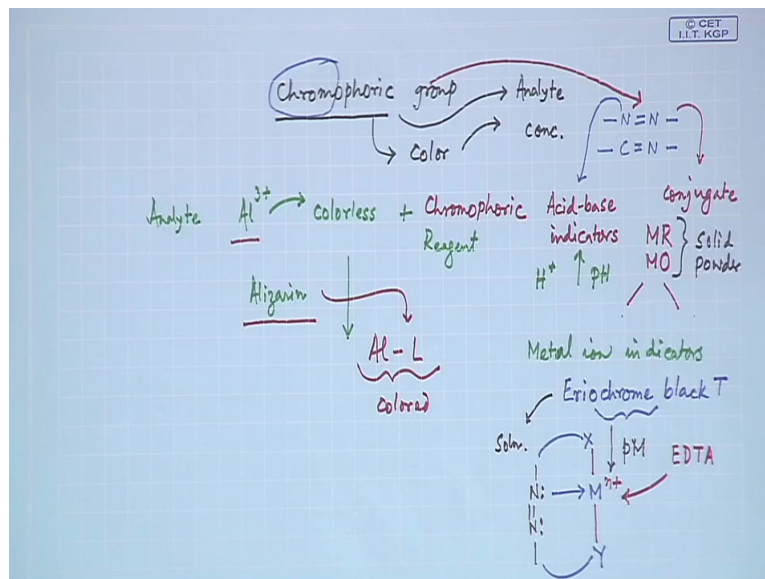 © CET
I.I.T. KGP
Chromophoric group
Analyte
conc.
color
–N=N–
–C=N–
Analyte Al³⁺ colorless + Chromophoric
Reagent
Acid-base
indicators
H⁺ pH
conjugate
MR
MO
Solid
powder
Alizarin
Al – L
colored
Metal ion indicators
Eriochrome black T
Soln.
pM
EDTA
X
N: M^n+
N:
Y